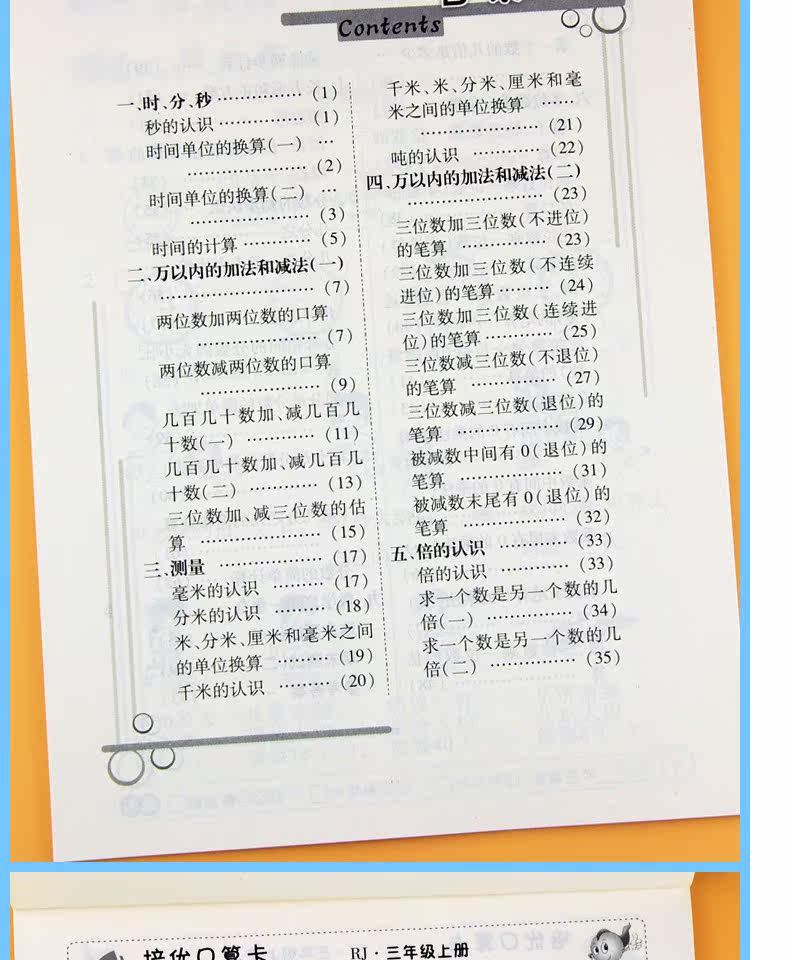 Contents
一、时、分、秒 …………… (1)
秒的认识 …………… (1)
时间单位的换算(一) …
………………… (2)
时间单位的换算(二) …
………………… (3)
时间的计算 ………… (5)
二、万以内的加法和减法(一)
……………………… (7)
两位数加两位数的口算
………………… (7)
两位数减两位数的口算
………………… (9)
几百几十数加、减几百几
十数(一) ………… (11)
几百几十数加、减几百几
十数(二) ………… (13)
三位数加、减三位数的估
算 ………………… (15)
三、测量 ……………… (17)
毫米的认识 ……… (17)
分米的认识 ……… (18)
米、分米、厘米和毫米之间
的单位换算 ……… (19)
千米的认识 ……… (20)
千米、米、分米、厘米和毫
米之间的单位换算 ……
………………… (21)
吨的认识 ………… (22)
四、万以内的加法和减法(二)
…………………… (23)
三位数加三位数(不进位)
的笔算 …………… (23)
三位数加三位数(不连续
进位)的笔算 ……… (24)
三位数加三位数(连续进
位)的笔算 ………… (25)
三位数减三位数(不退位)
的笔算 …………… (27)
三位数减三位数(退位)的
笔算 ……………… (29)
被减数中间有0(退位)的
笔算 ……………… (31)
被减数末尾有0(退位)的
笔算 ……………… (32)
五、倍的认识 ………… (33)
倍的认识 ………… (33)
求一个数是另一个数的几
倍(一) …………… (34)
求一个数是另一个数的几
倍(二) …………… (35)
培优口算卡 RJ·三年级上册